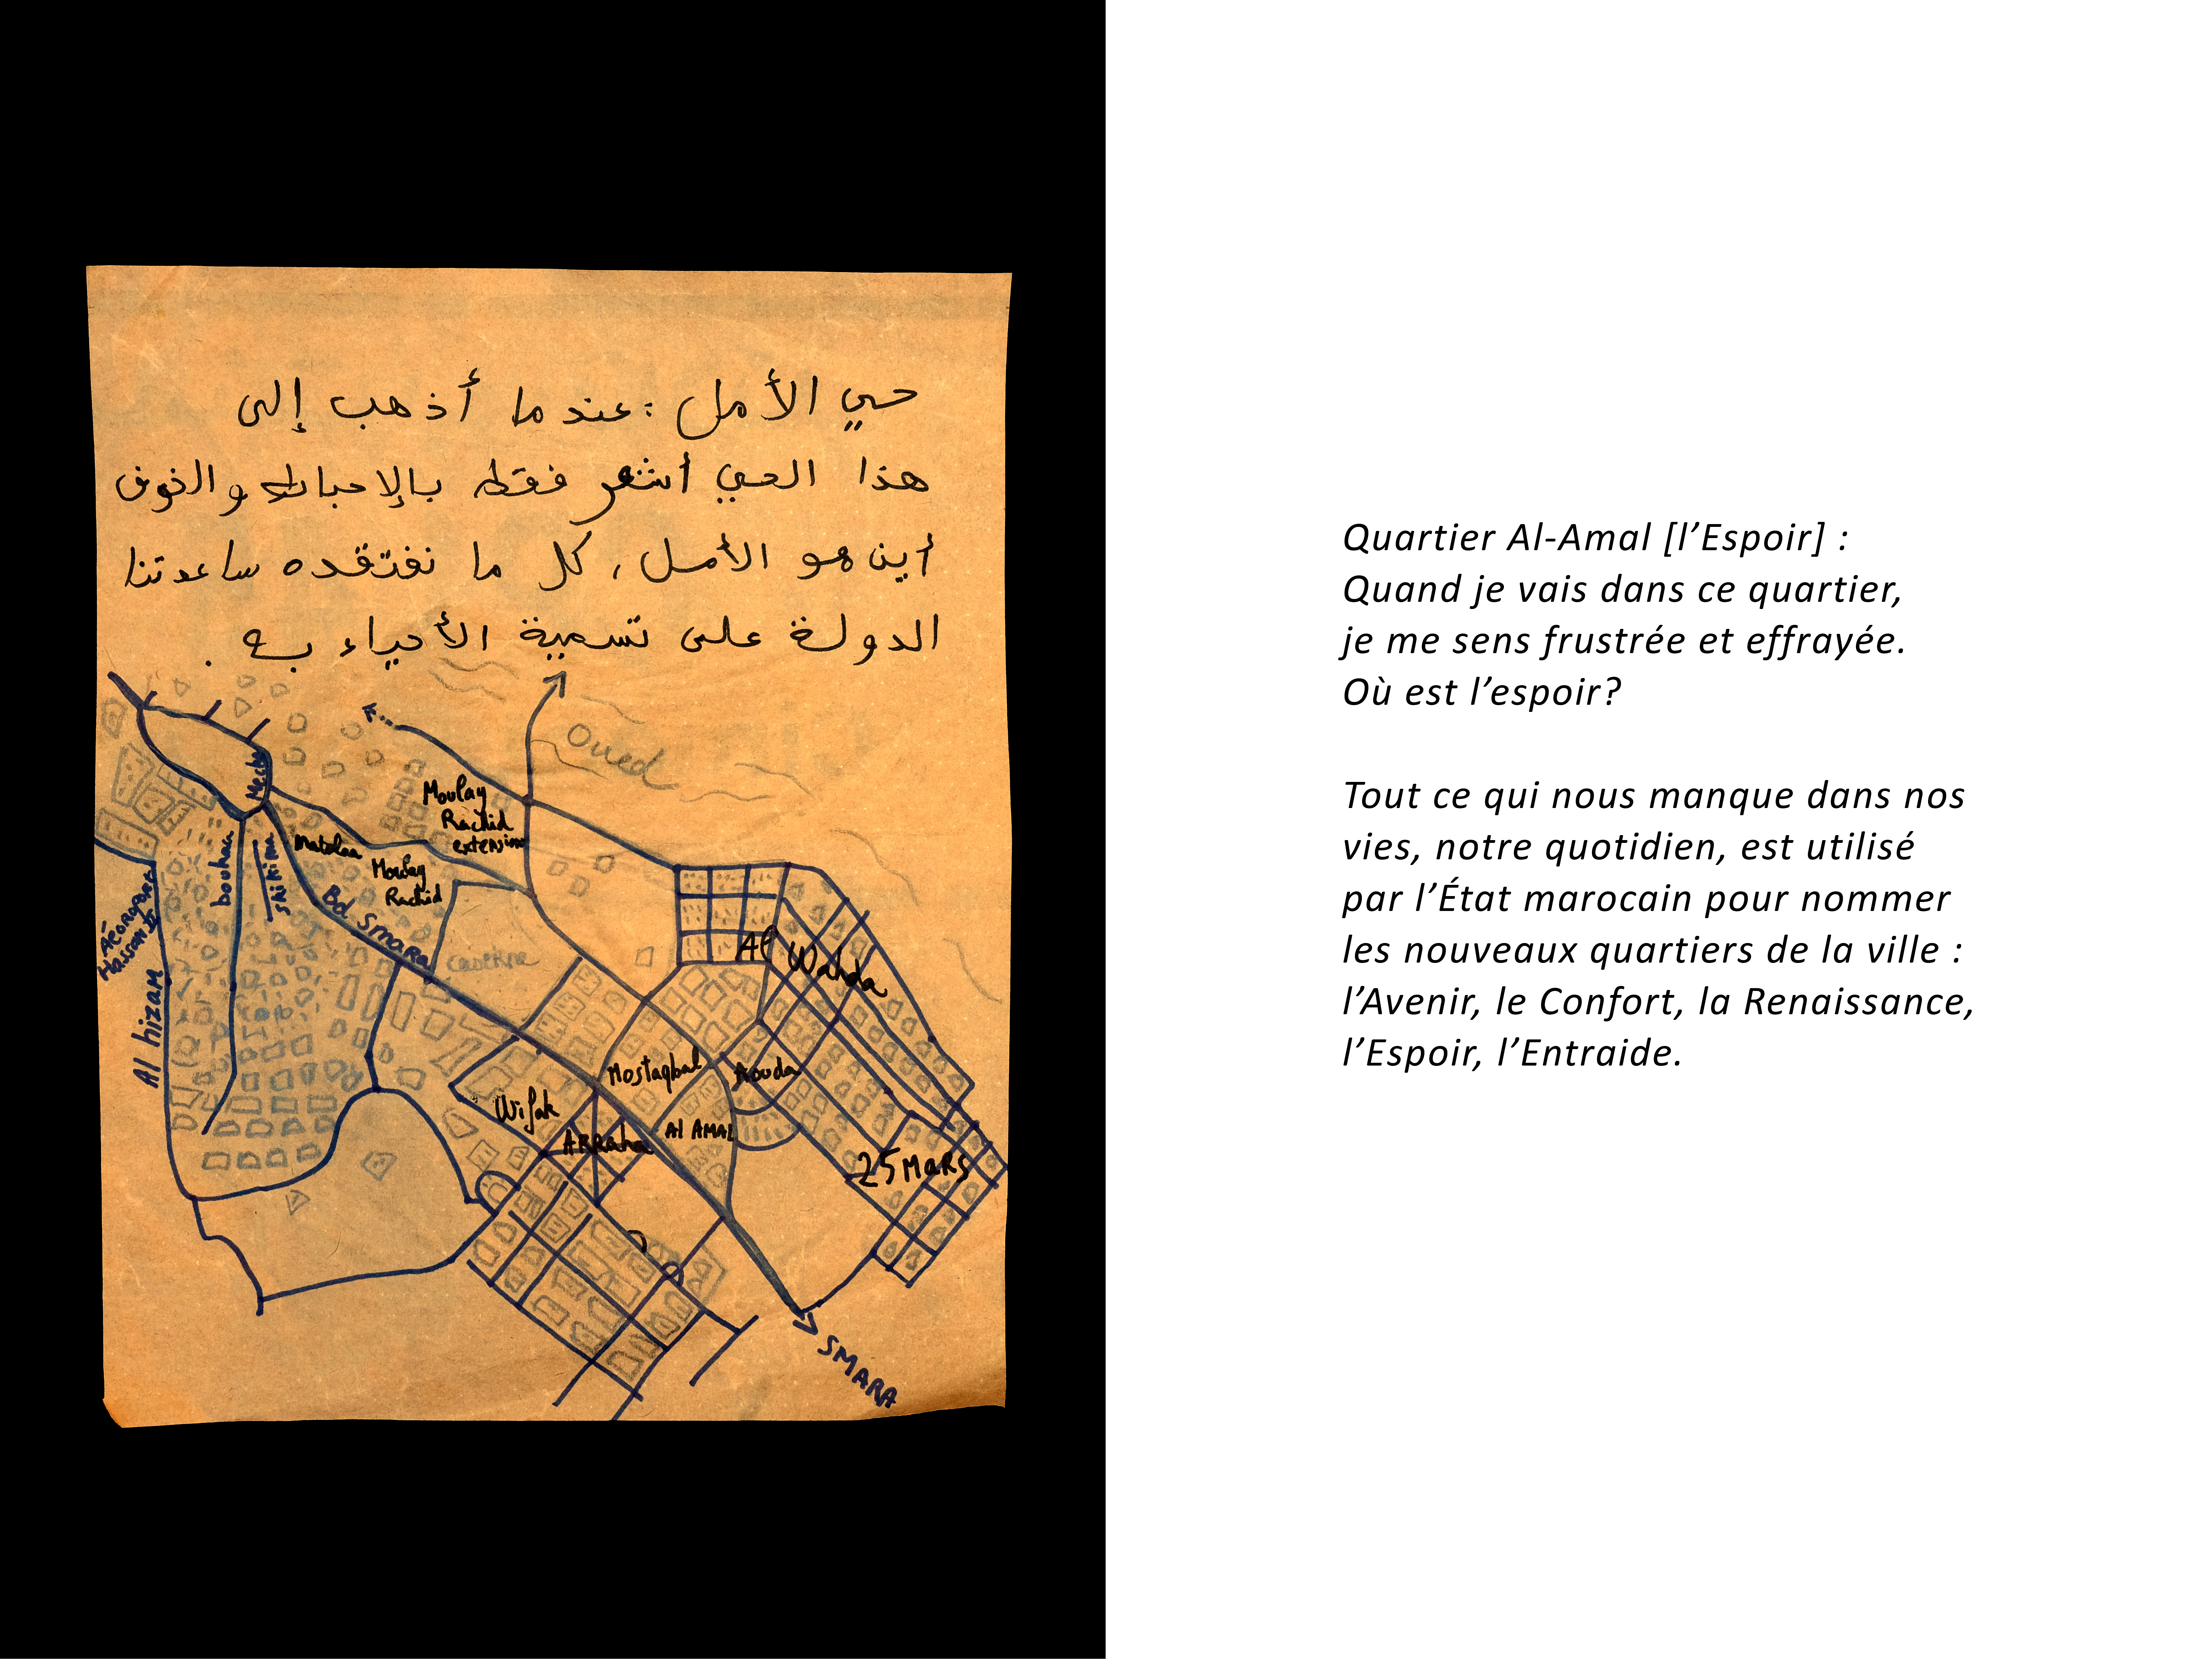 حي الأمل : عندما أذهب إلى
هذا الحي أشعر فقط بالإحباط والخوف
أين هو الأمل، كل ما نفتقده ساعدتنا
الدولة على تسمية الأحياء به .
Oued
Moulay
Rachid
extension
Matalaa
Moulay
Rachid
bouhaa
skikima
Bd. Smara
caserne
Aéroport
Hassan II
Al hizam
Al Wahda
Mostaqbal
Aouda
Wifak
ARRaha
Al AMAL
25 MaRS
SMARA
Quartier Al-Amal [l’Espoir] :
Quand je vais dans ce quartier,
je me sens frustrée et effrayée.
Où est l’espoir?
Tout ce qui nous manque dans nos
vies, notre quotidien, est utilisé
par l’État marocain pour nommer
les nouveaux quartiers de la ville :
l’Avenir, le Confort, la Renaissance,
l’Espoir, l’Entraide.